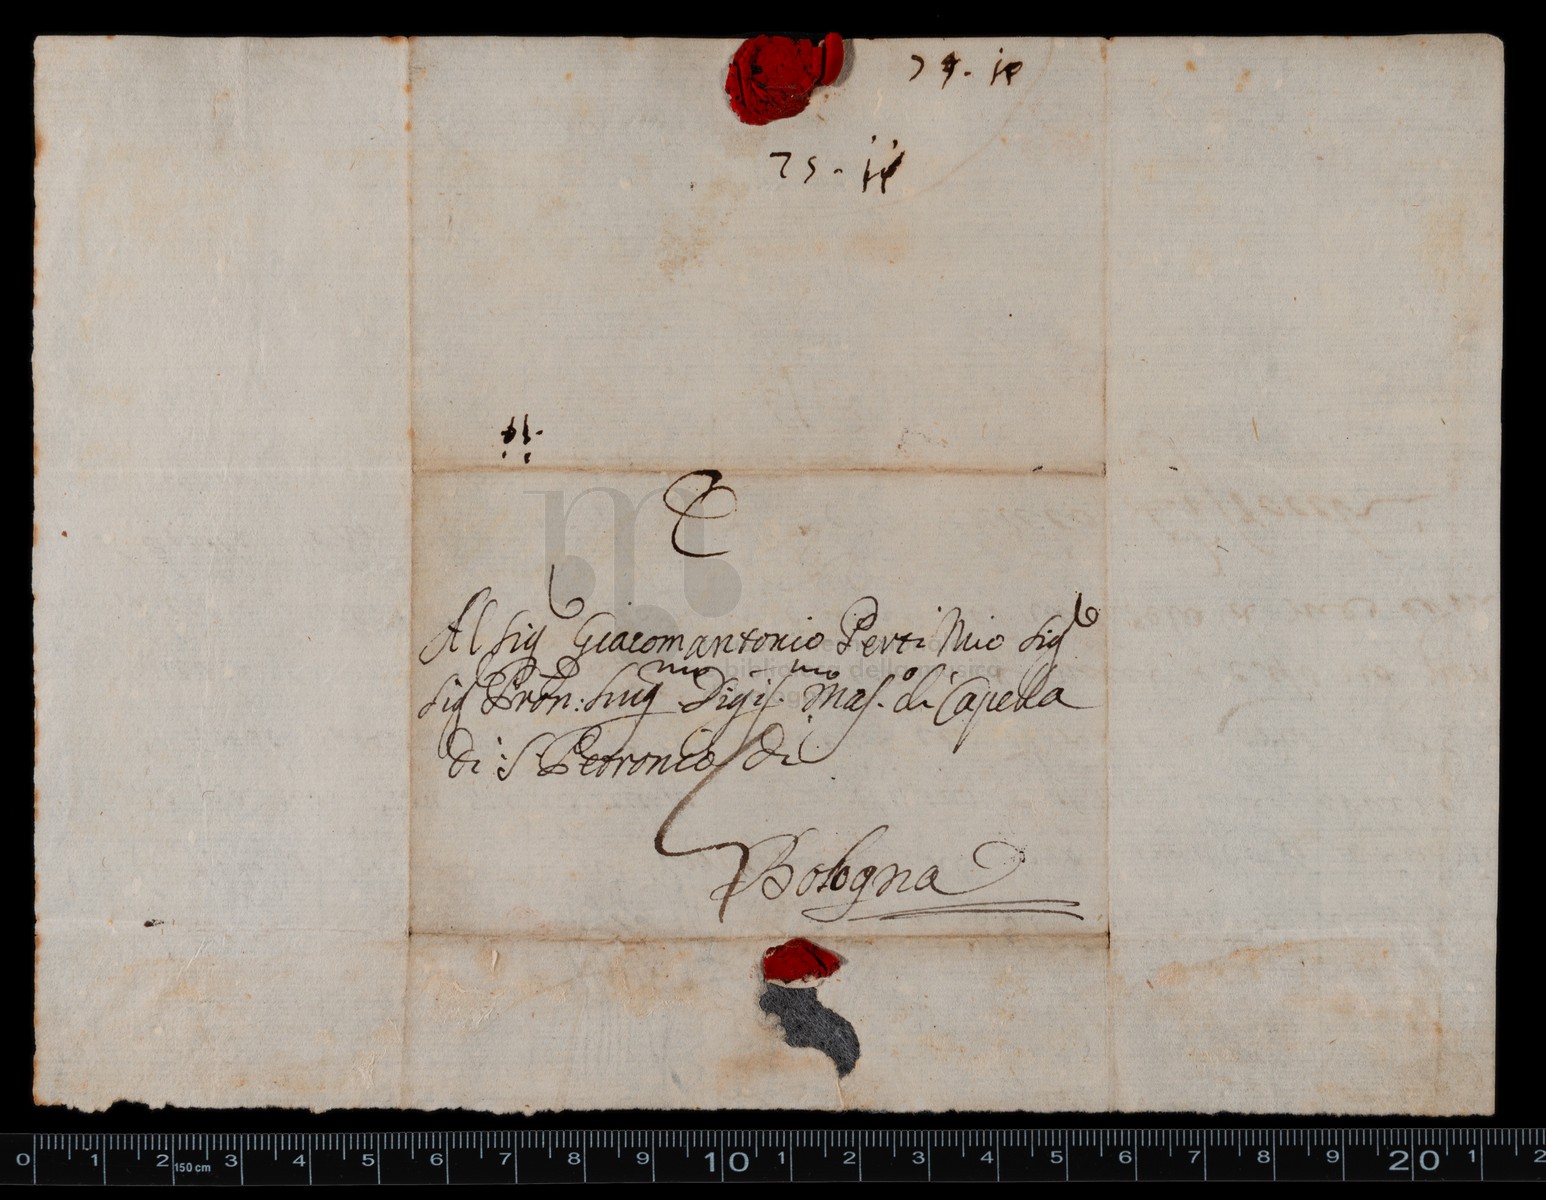 Al Sig.r Giacomantonio Perti Mio Sig.r
Sig.r Pron: Sing.mo Digis.mo Mas.o di Capella
di S. Petronio di
Bologna
biblioteca della musica
0 1 2 3 4 5 6 7 8 9 10 1 2 3 4 5 6 7 8 9 20 1 2
150 cm